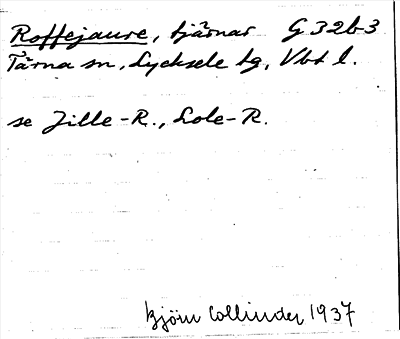 Roffejaure, tjärnar G 32b3
Tärna sn, Lycksele lg, Vbt l.
se Jille-R., Lole-R.
Björn Collinder 1937